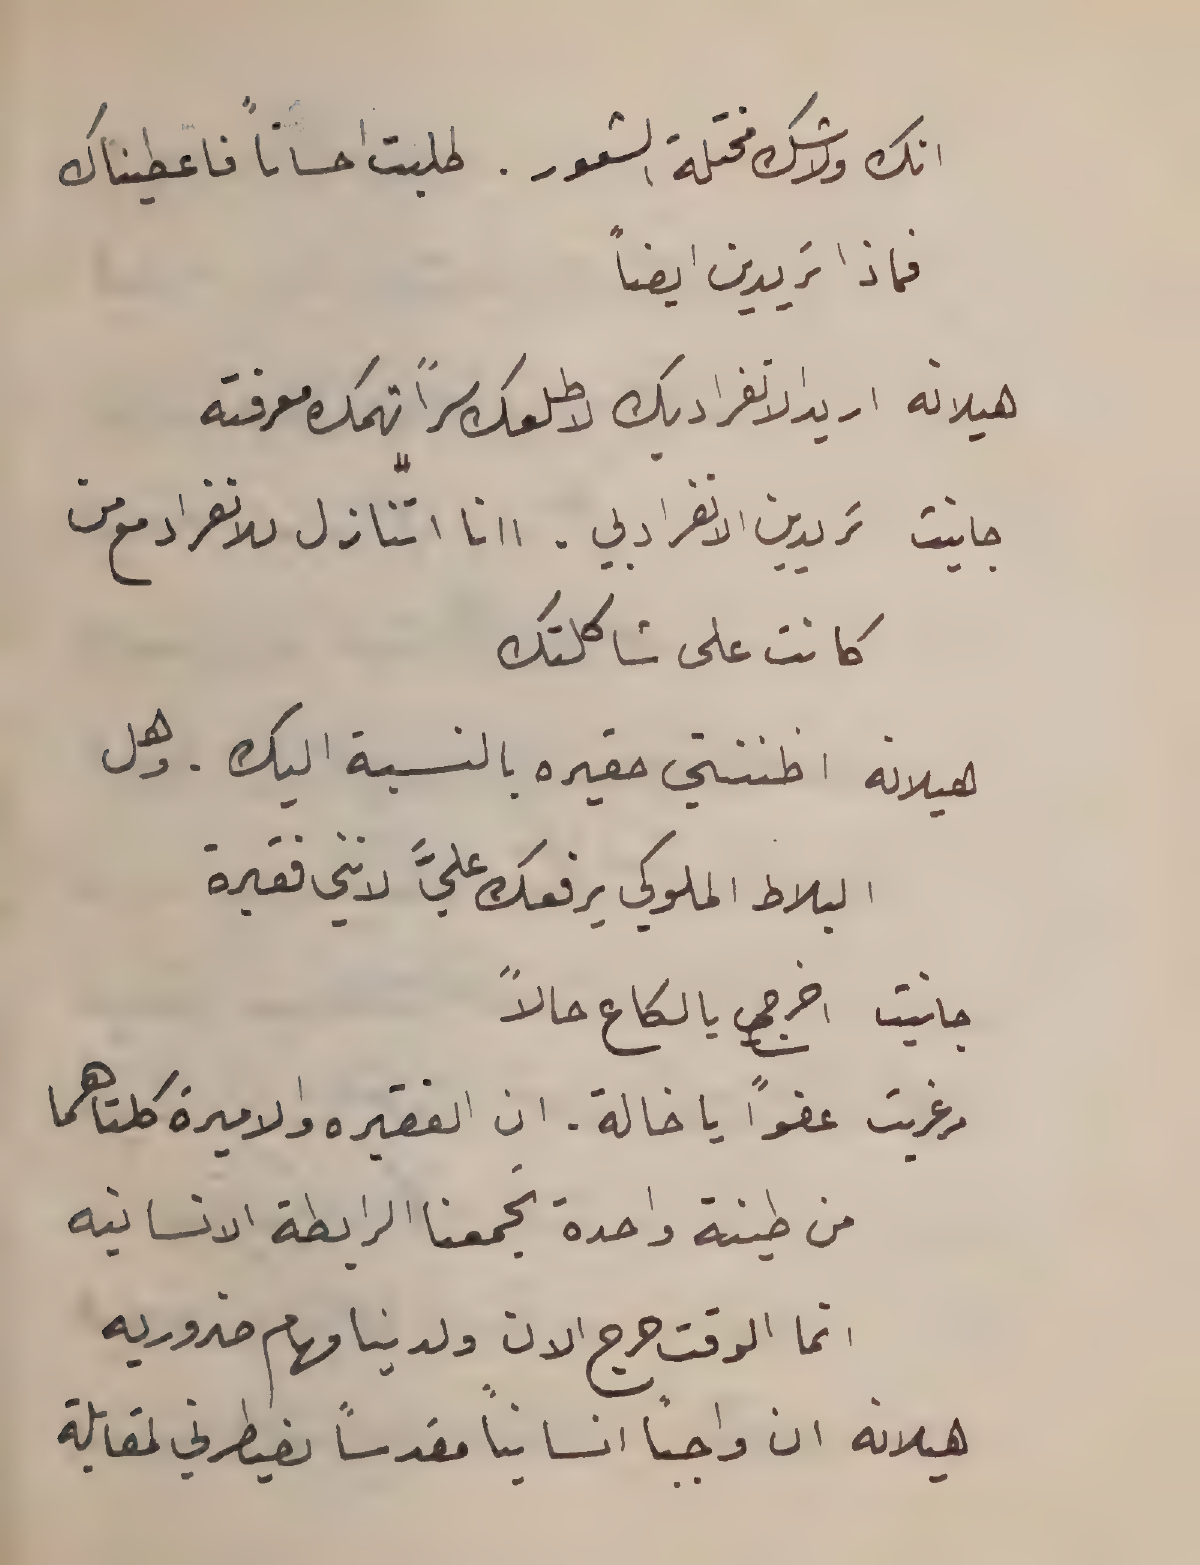 انك ولاشك مختلة الشعور . طلبت احساناً فاعطيناك
فماذا تريدين ايضاً
هيلانه اريد الانفراد بك لاطلعك سراً تهمك معرفته
جانيت تريدين الانفراد بي . اانا اتنازل للانفراد مع من
كانت على شاكلتك
هيلانه اظننتي حقيره بالنسبة اليك . وهل
البلاط الملوكي يرفعك عليَّ لانني فقيرة
جانيت اخرجي يالكاع حالاً
مرغريت عفواً يا خالة . ان الفقيره والاميرة كلتاهما
من طينة واحدة تجمعنا الرابطة الانسانيه
انما الوقت حرج الان ولدينا مهام ضروريه
هيلانه ان واجباً انسانياً مقدساً يضطرني لمقابلة